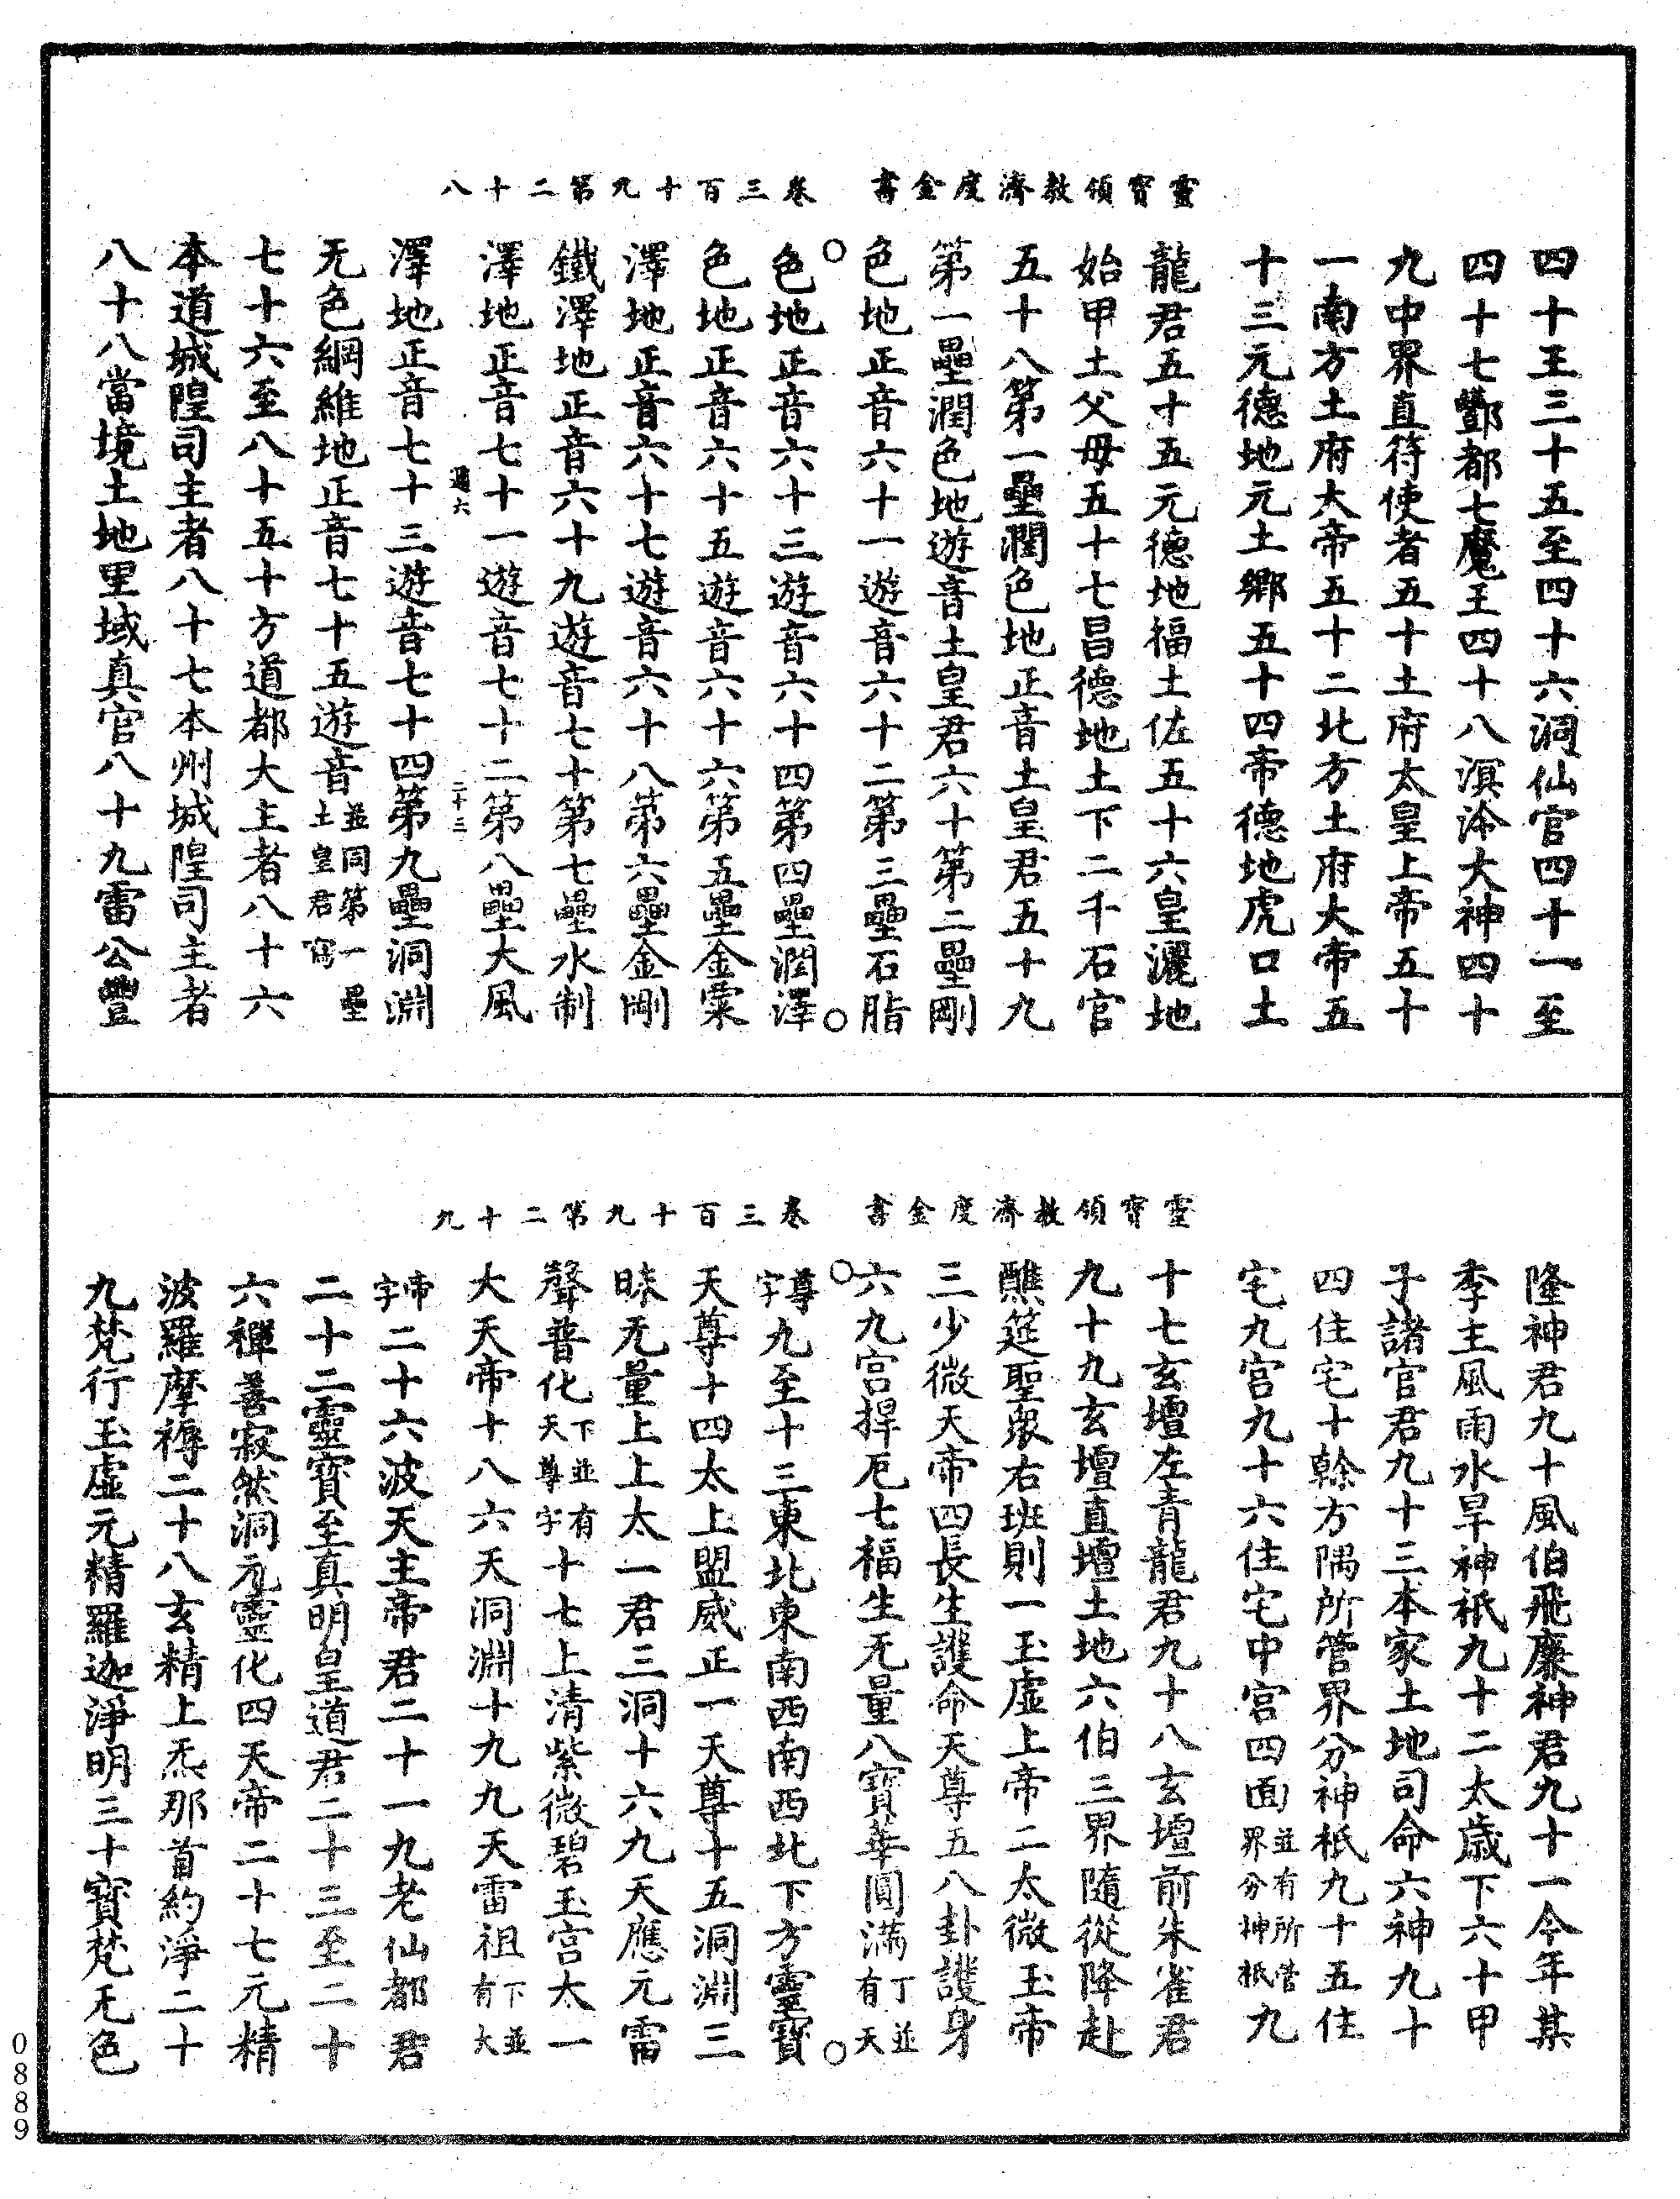 靈寶領教濟度金書　卷三百十九第二十八
四十王三十五至四十六洞仙官四十一至
四十七酆都七魔王四十八溟泠大神四十
九中界直符使者五十土府太皇上帝五十
一南方土府大帝五十二北方土府大帝五
十三元德地元土鄉五十四帝德地虎口土
龍君五十五元德地福土佐五十六皇灑地
始甲土父母五十七昌德地土下二千石官
五十八第一壘潤色地正音土皇君五十九
第一壘潤色地遊音土皇君六十第二壘剛
色地正音六十一遊音六十二第三壘石脂
色地正音六十三遊音六十四第四壘潤澤
色地正音六十五遊音六十六第五壘金粟
澤地正音六十七遊音六十八第六壘金剛
鐵澤地正音六十九遊音七十第七壘水制
澤地正音七十一遊音七十二第八壘大風
通六　二十三
澤地正音七十三遊音七十四第九壘洞淵
无色綱維地正音七十五遊音並同第一壘土皇君寫
七十六至八十五十方道都大主者八十六
本道城隍司主者八十七本州城隍司主者
八十八當境土地里域真官八十九雷公豐
靈寶領教濟度金書　卷三百十九第二十九
隆神君九十風伯飛廉神君九十一今年某
季主風雨水旱神祇九十二太歲下六十甲
子諸官君九十三本家土地司命六神九十
四住宅十榦方隅所管界分神祇九十五住
宅九宮九十六住宅中宮四面並有所管界分神祇九
十七玄壇左青龍君九十八玄壇前朱雀君
九十九玄壇直壇土地六伯三界隨從降赴
醮筵聖眾右班則一玉虛上帝二太微玉帝
三少微天帝四長生護命天尊五八卦護身
六九宮捍厄七福生无量八寶華圓滿丁並有天
尊字九至十三東北東南西南西北下方靈寶
天尊十四太上盟威正一天尊十五洞淵三
昧无量上上太一君三洞十六九天應元雷
聲普化下並有天尊字十七上清紫微碧玉宮太一
大天帝十八六天洞淵十九九天雷祖下並有大
帝字二十六波天主帝君二十一九老仙都君
二十二靈寶至真明皇道君二十三至二十
六禪善寂然洞元靈化四天帝二十七元精
波羅摩褥二十八玄精上炁那首約淨二十
九梵行玉虛元精羅迦淨明三十寶梵无色
0889